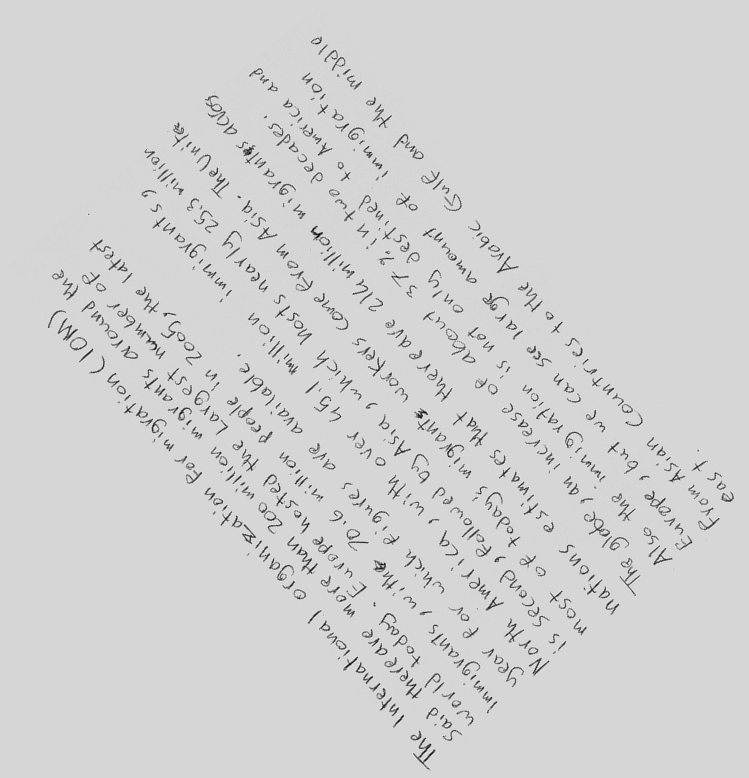 The International organization For migration (IOM)
Said there are more than 200 million migrants around the
world today. Europe hosted the Largest number of
immigrants, with 70.6 million people in 2005, the latest
year for which figures are available.
North America, with over 45.1 million immigrants,
is second, followed by Asia, which hosts nearly 25.3 million
most of today's migrants workers come from Asia. The Unite
nations estimates that there are 214 million migrants acros
The globe, an increase of about 37% in two decades.
Also the immigration is not only destined to America and
Europe, but we can see large amount of immigration
From Asian countries to the Arabic Gulf and the middle
east.